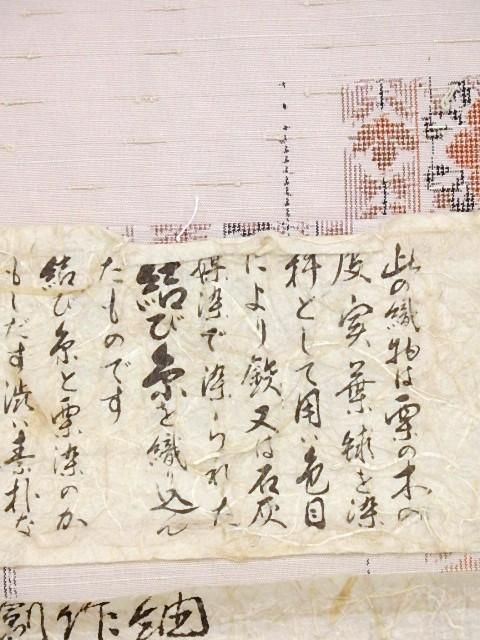 此の織物は栗の木の
皮 実 葉 毬を染
料として用い色目
により鉄又は石灰
媒染で染められた
結び糸を織り込ん
たものです
結び糸と栗染のか
もしだす渋い素朴な
創作紬